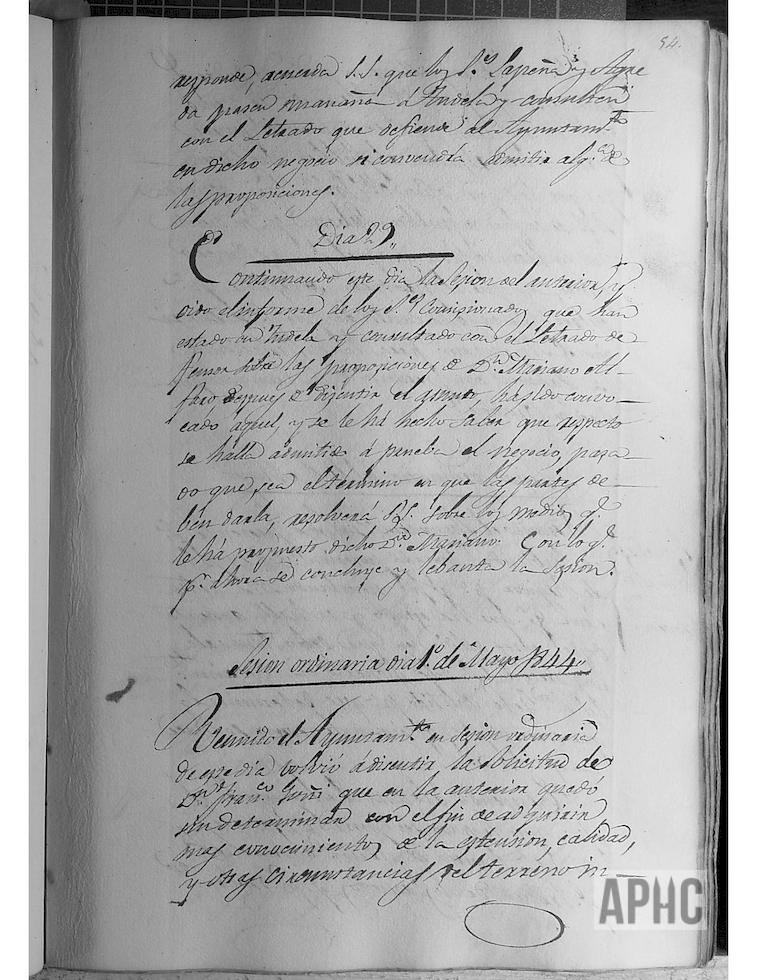 54.
responde, acuerda S.S. que los S.es Lapeña y Agre
da pasen mañana á Tudela y consulten
con el Letrado que defiende al Ayuntam.to
en dicho negocio si convendrá admitir alg.a de
las proposiciones.
Dia 29,,
Continuando este dia la Sesion del anterior, y
oido el informe de los S.es Comisionados que han
estado en Tudela y consultado con el Letrado de-
fensor sobre las proposiciones de D.n Mariano Al-
faro despues de discutir el asunto, há sido convo-
cado aquel, y se le há hecho saber que respecto
se halla admitido á prueba el negocio, pasa-
do que sea el término en que las partes de-
ben darla, resolverá S.S. sobre los medios q.e
le há propuesto dicho D.n Mariano. Con lo q.e
p.r ahora se concluye y lebanta la Sesion.
Sesion ordinaria dia 1.o de Mayo 1844,,
Reunido el Ayuntam.to en sesion ordinaria
de este dia volvió á discutir la solicitud de
D.n Fran.co Goñi que en la anterior quedó
sin determinar con el fin de adquirir
mas conocimientos de la estension, calidad,
y otras circunstancias del terreno in-
APHC